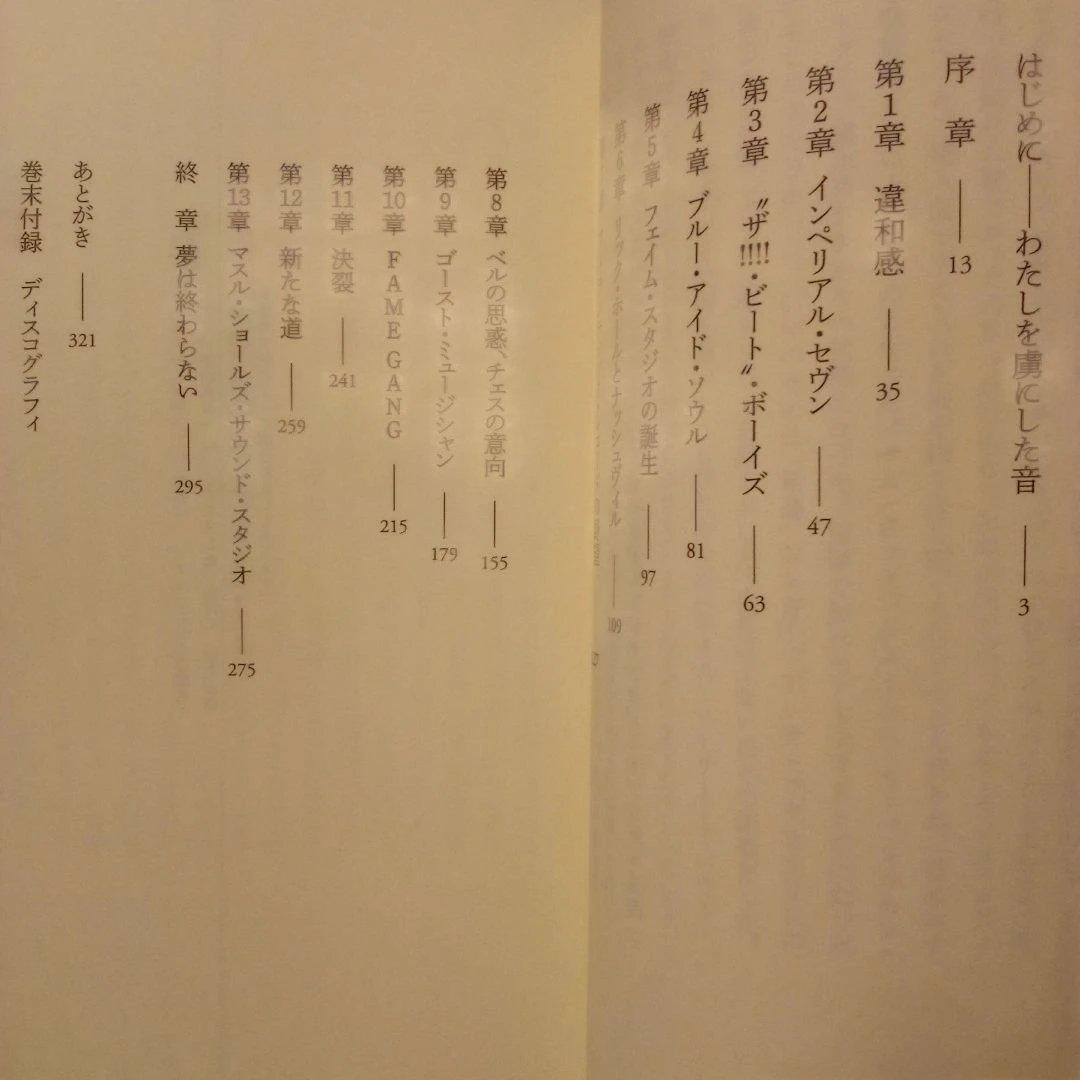 はじめに――わたしを虜にした音 ―― 3
序　章 ―― 13
第1章　違和感 ―― 35
第2章　インペリアル・セヴン ―― 47
第3章　〝ザ!!!!・ビート〟・ボーイズ ―― 63
第4章　ブルー・アイド・ソウル ―― 81
第5章　フェイム・スタジオの誕生 ―― 97
第6章　リック・ホールとナッシュヴィル ―― 109
第8章　ベルの思惑、チェスの意向 ―― 155
第9章　ゴースト・ミュージシャン ―― 179
第10章　FAME GANG ―― 215
第11章　決裂 ―― 241
第12章　新たな道 ―― 259
第13章　マスル・ショールズ・サウンド・スタジオ ―― 275
終　章　夢は終わらない ―― 295
あとがき ―― 321
巻末付録　ディスコグラフィ